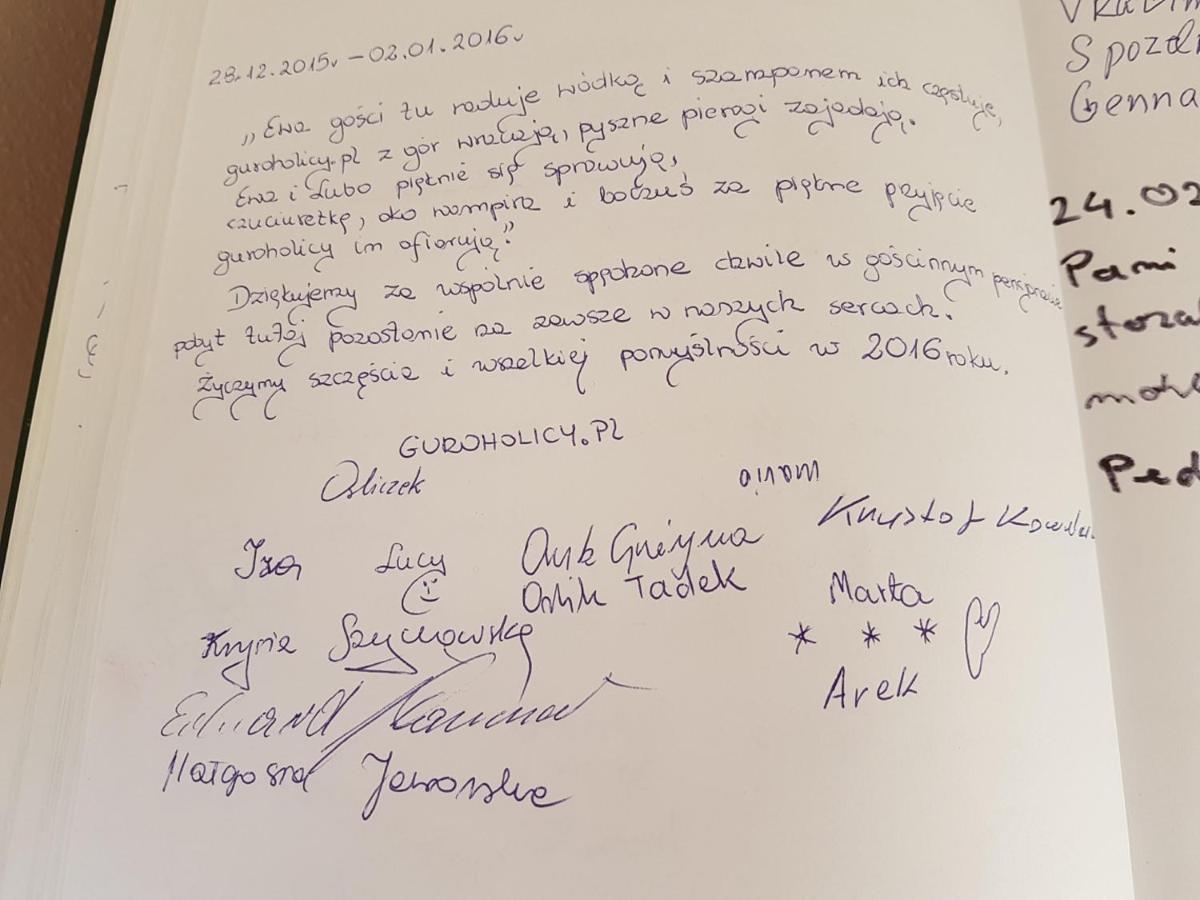 28.12.2015r – 02.01.2016r
„Ewa gości tu raduje wódką i szamponem ich częstuje,
guroholicy.pl z gór wracają, pyszne pierogi zajadają.
Ewa i Lubo pięknie się sprawują,
czuciuretkę, oko wampira i boczuś za piękne przyjęcie
guroholicy im ofiarują."
Dziękujemy za wspólnie spędzone chwile w gościnnym pensjonacie
pobyt tutaj pozostanie na zawsze w naszych sercach.
Życzymy szczęścia i wszelkiej pomyślności w 2016 roku.
GUROHOLICY.PL
Osliczek
Mario
Iza Lucy
Krzysztof
Tadek
Marta
Krysia
* * *
Arek
Edward
Małgosia Jaworska
24.02
Pami
Ped
Spozdr
Genna